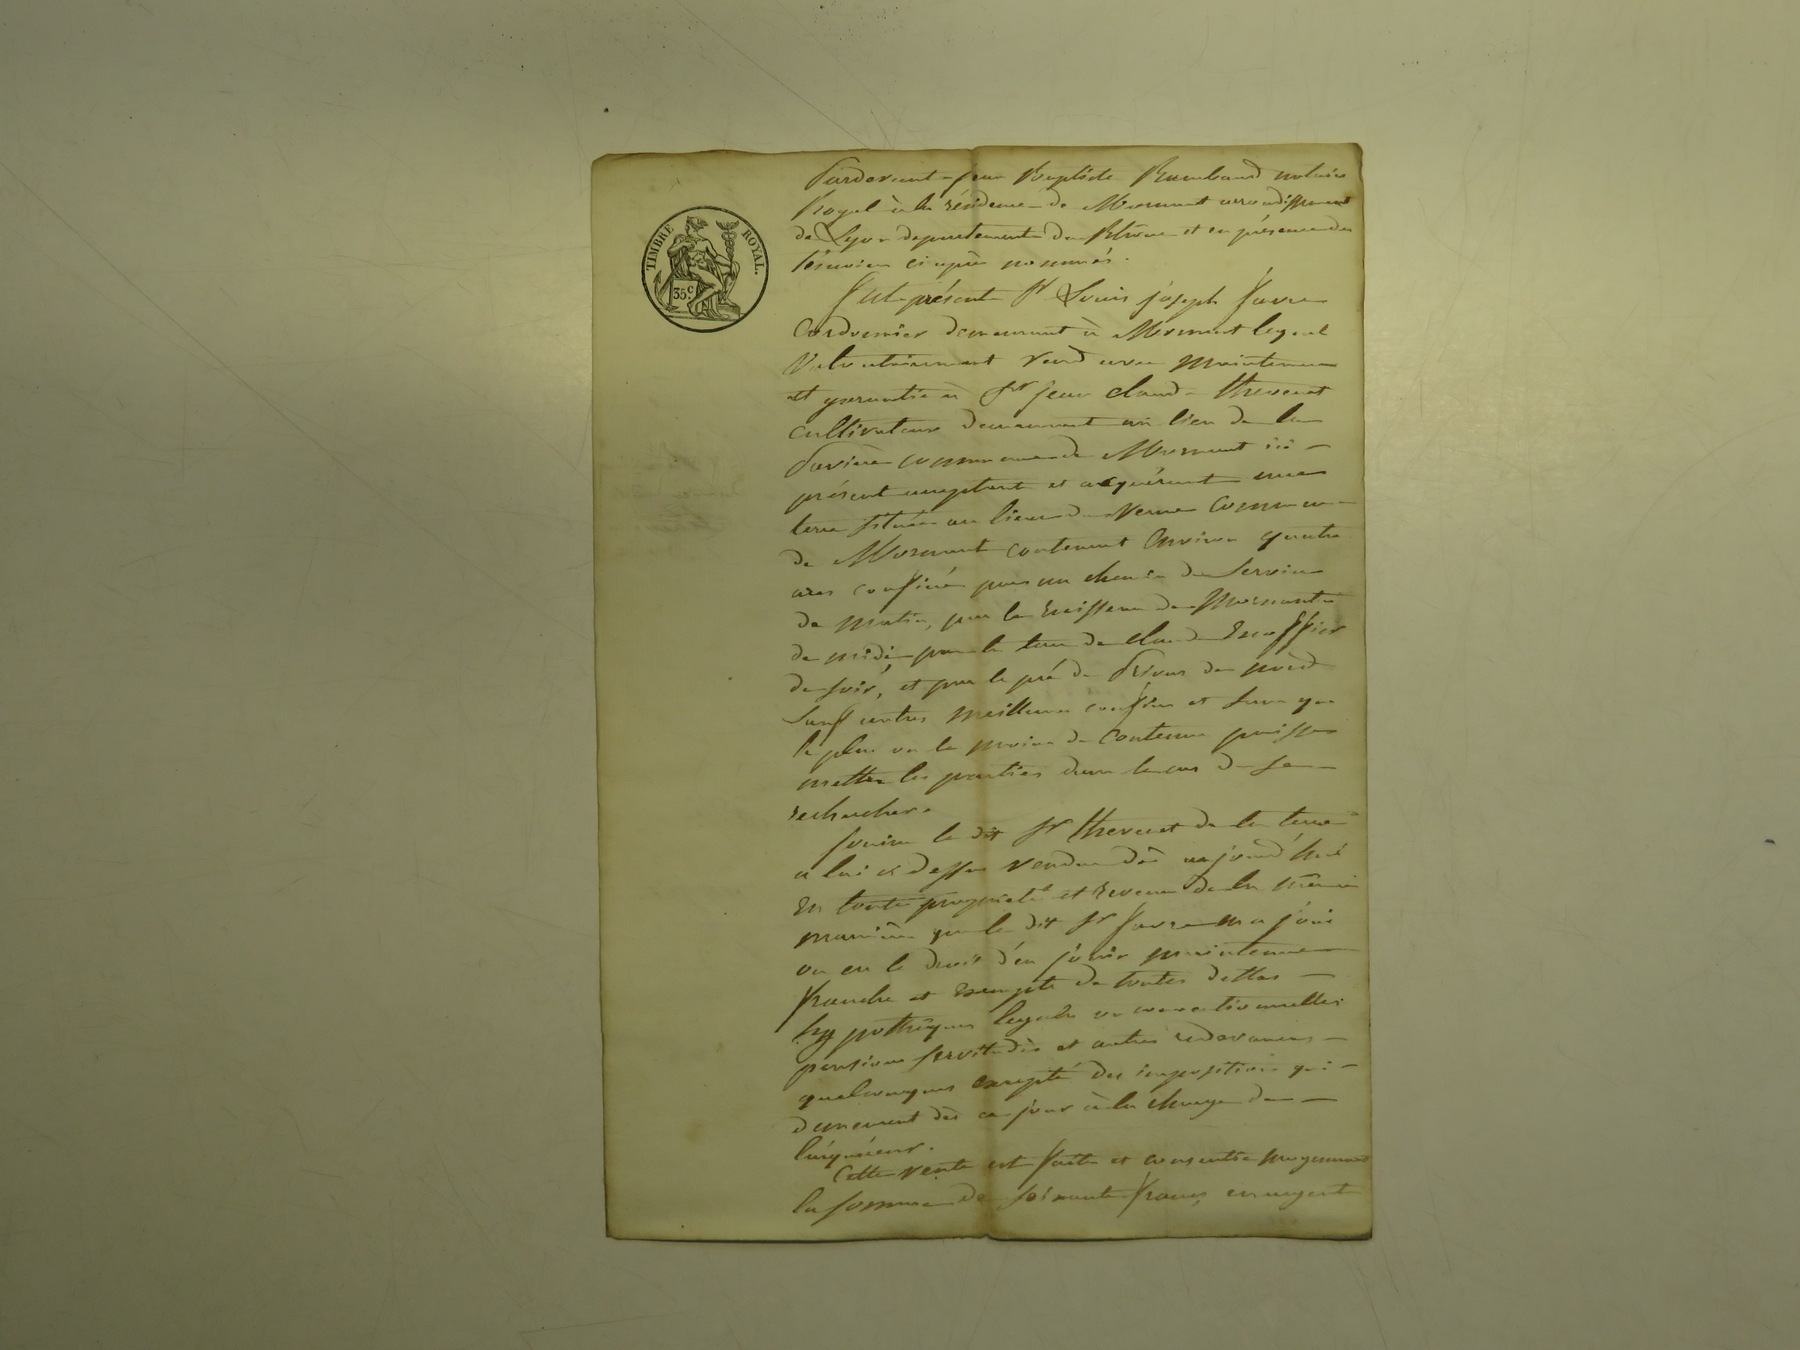 TIMBRE ROYAL.
35 c.
Pardevant Jean Baptiste Rambaud notaire
Royal à la résidence de Mornant arrondissement
de Lyon departement du Rhône et en présence des
témoins ci après nommés.
fut présent Sr Louis joseph favre
Cordonnier demeurant à Mornant lequel
Volontairement vend avec maintenue
et garantie à Sr jean claude thevenet
cultivateur demeurant au lieu de la
commune de Mornant ici
présent acceptant et acquérant une
terre située au lieu du Verne Commune
de Mornant contenant Environ quatre
ares confinée par un chemin de Service
de matin, par le ruisseau de Mornantet
de midi par la terre de claude Escoffier
de soir, et par le pré de de nord
Sauf autres meilleurs confins et sans que
le plus ou le moins de Contenue puisse
mettre les parties dans le cas de se
rechercher.
Jouira le dit Sr thevenet de la terre
a lui ci dessus vendue dès aujourd'hui
En toute propriété et revenu de la même
manière que le dit Sr favre en a joui
ou eu le droit d'en jouir maintenue
franche et Exempte de toutes dettes
hyppothèques legales ou conventionnelles
pensions servitudes et autres redevances
quelconques excepté des impositions qui
demeurent dès ce jour à la charge de
l'acquéreur.
Cette vente est faite et consentie moyennant
la somme de soixante francs en argent